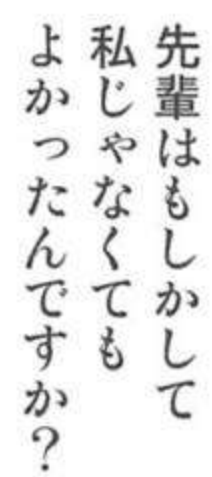 先輩はもしかして
私じゃなくても
よかったんですか？